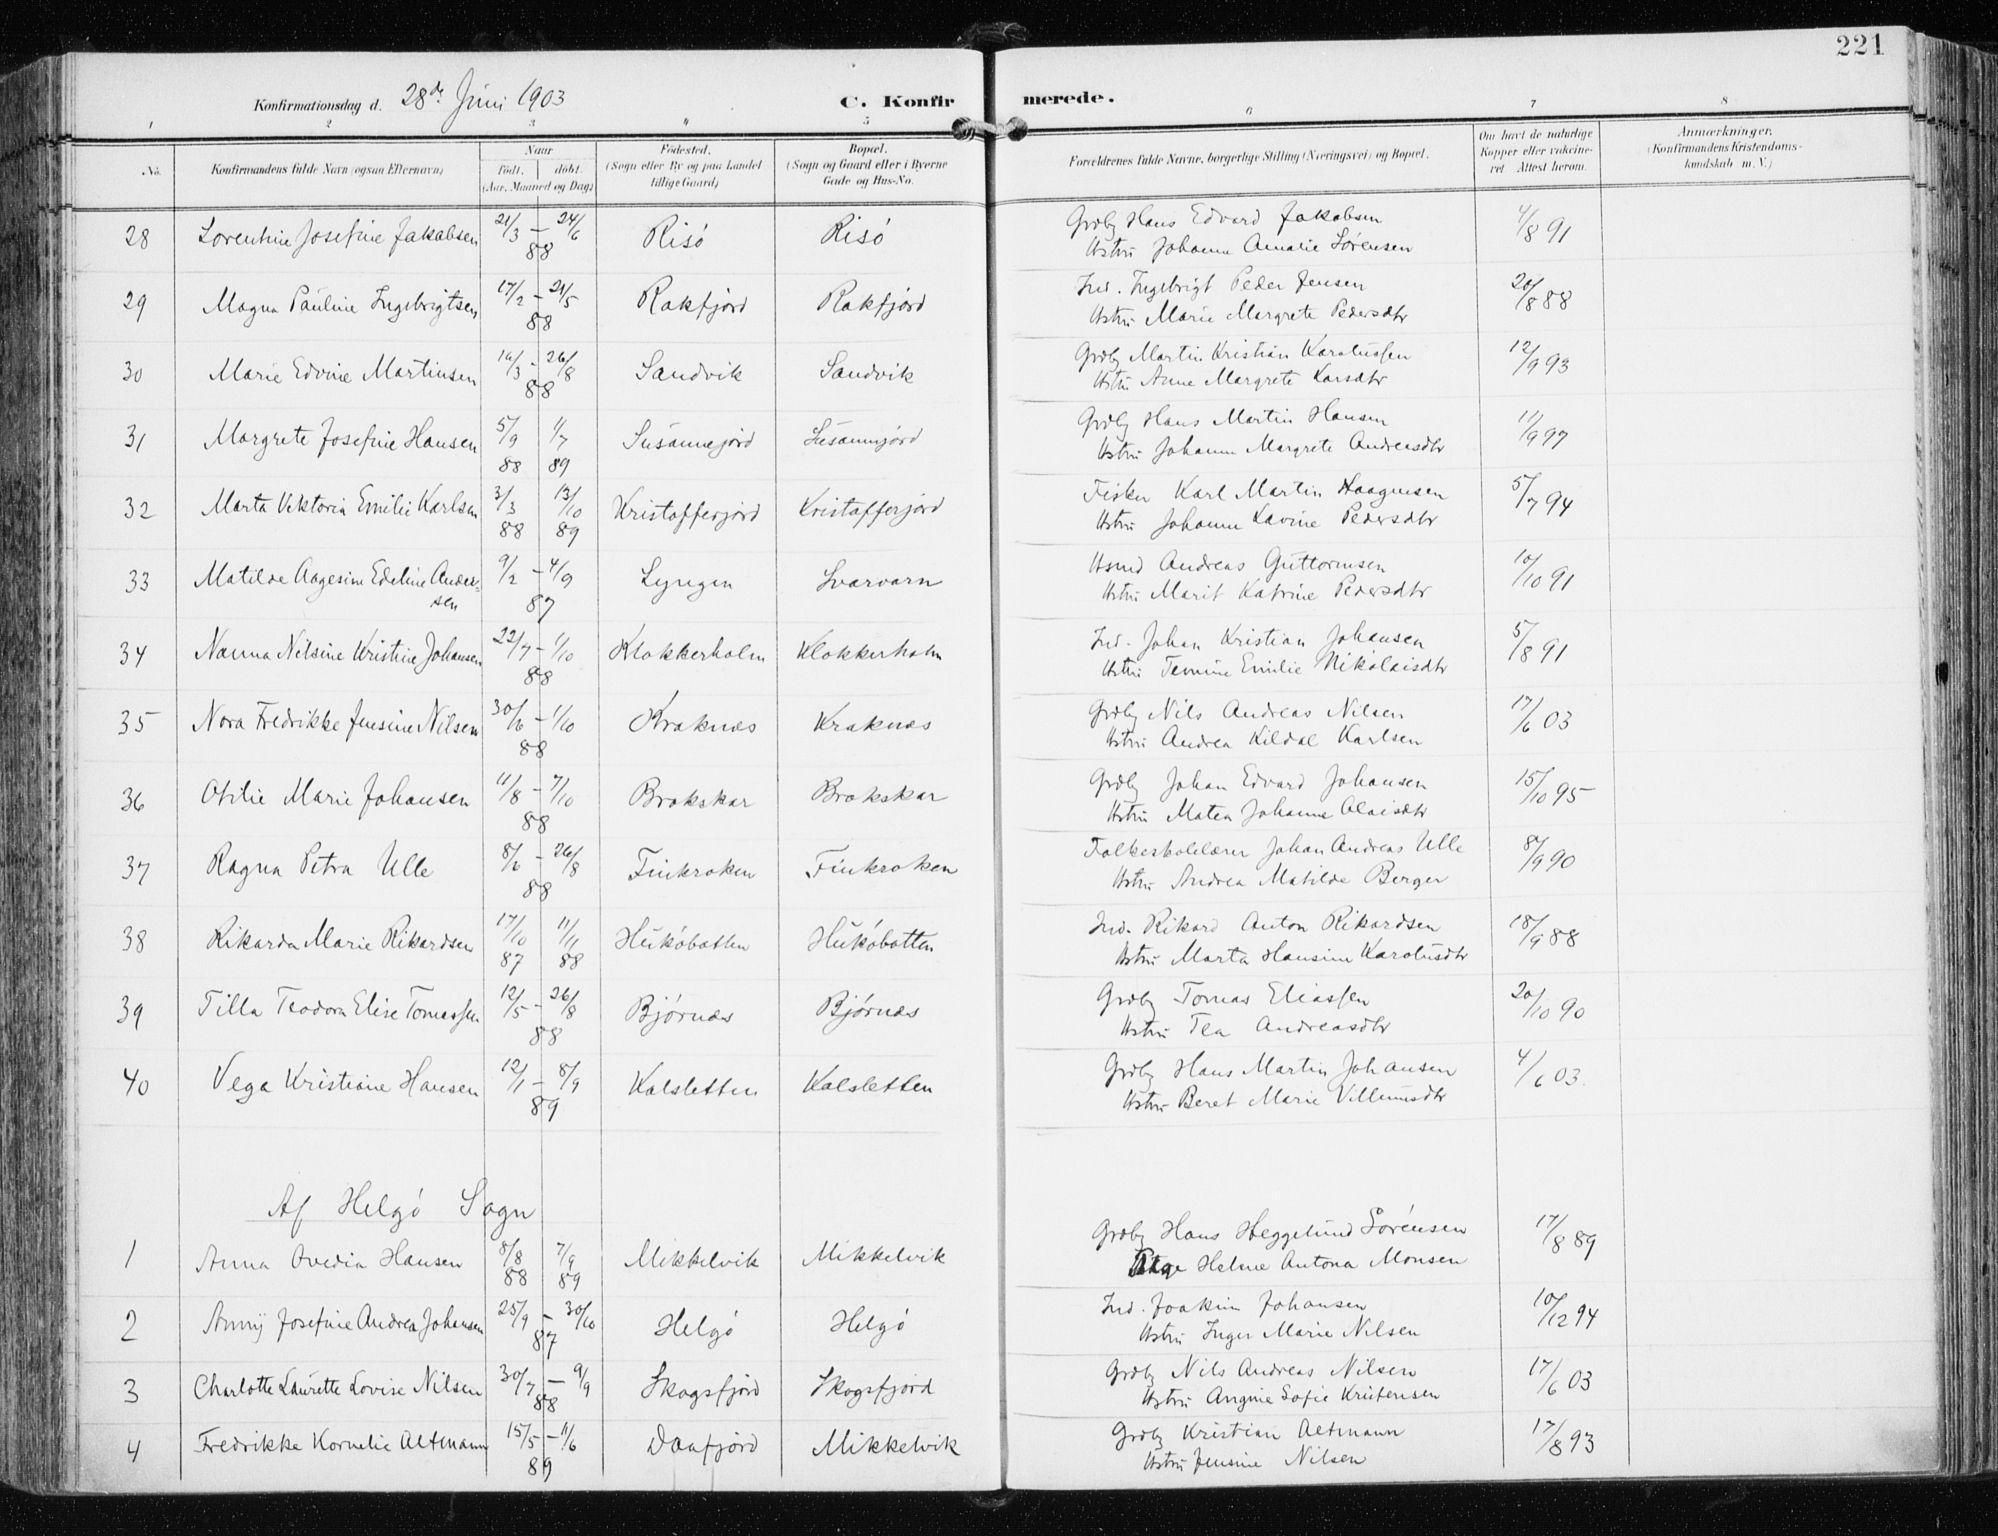 221
Konfirmationsdag d. 28de Juni 1903 C. Konfirmerede.
1 2 3 4 5 6 7 8
No. Konfirmandens fulde Navn (ogsaa Efternavn) Naar Født. døbt. (Aar, Maaned og Dag) Fødested. (Sogn eller By og paa Landet tillige Gaard) Bopæl. (Sogn og Gaard eller i Byerne Gade og Hus-No. Forældrenes fulde Navne, borgerlige Stilling (Næringsvei) og Bopæl. Om havt de naturlige Kopper eller vaccineret Attest herom. Anmærkninger. (Konfirmandens Kristendomskundskab m. V.)
28 Lorentine Josefine Jakobsen 21/3 – 24/6 88 Risö Risö Grdbg Hans Edvard Jakobsen 4/8 91
Hstru Johanna Amalie Sörensen
29 Magna Pauline Ingebrigtsen 17/2 – 21/5 88 Rakfjord Rakfjord Ind. Ingebrigt Peder Jensen 20/8 88
Hstru Marie Margrete Pedersdtr
30 Marie Edvine Martinsen 16/3 - 26/8 88 Sandvik Sandvik Grdbg Martin Kristian Karolussen 12/9 93
Hstru Anne Margrete Larsdtr
31 Margrete Josefine Hansen 5/9 88 1/7 89 Susannejord Susannejord Grdbg Hans Martin Hansen 11/9 97
Hstru Johanna Margrete Andreasdtr
32 Marta Viktoria Emilie Karlsen 3/3 88 13/10 89 Kristofferjord Kristofferjord Fisker Karl Martin Haagensen 5/7 94
Hstru Johanna Lavine Pedersdtr
33 Matilde Aagesine Edeline Andersen 9/2 – 4/9 87 Lyngen Svarvarn Husmd Andreas Guttormsen 10/10 91
Hstru Marit Katrine Pedersdtr
34 Nanna Nilsine Kristine Johansen 22/7 – 1/10 88 Klokkerholm Klokkerholm Ind. Johan Kristian Johansen 5/8 91
Hstru Emilie Nikolaisdtr
35 Nora Fredrikke Jensine Nilsen 30/6 – 1/10 88 Kraknæs Kraknæs Grdbg Nils Andreas Nilsen 17/6 03
Hstru Andrea Kildal Karlsen
36 Otilie Marie Johansen 11/8 – 7/10 88 Brokskar Brokskar Grdbg Johan Edvard Johansen 15/10 95
Hstru Matea Johanne Olaisdtr
37 Ragna Petra Ulle 8/6 – 26/8 88 Finkroken Finkroken Folkeskolelærer Johan Andreas Ulle 8/9 90
Hstru Andrea Matilde Berger
38 Rikarda Marie Rikardsen 17/10 87 11/11 88 Hüköbotten Hüköbotten Ind. Rikard Anton Rikardsen 18/9 88
Hstru Marta Hansine Karolusdtr
39 Tilla Teodora Elise Tomassen 12/5 – 26/8 88 Bjørnæs Bjørnæs Grdbg Tomas Eliassen 20/10 90
Hstru Tea Andreasdtr
40 Vega Kristiane Hansen 12/1 – 8/9 89 Kalsletten Kalsletten Grdbg Hans Martin Johansen 4/6 03.
Hstru Beret Marie Villumsdtr
Af Helgö Sogn
1 Anna Ovedia Hansen 8/8 88 7/9 89 Mikkelvik Mikkelvik Grdbg Hans Heggelund Sørensen 17/8 89
Helene Antona Monsen
2 Anny Josefine Andrea Johansen 25/9 – 30/10 87 Helgö Helgö Ind. Joakim Johansen 10/12 94
Hstru Inger Marie Nilsen
3 Charlotte Laurette Lovise Nilsen 30/7 – 9/9 88 Skogsfjord Skogsfjord Grdbg Nils Andreas Nilsen 17/6 03
Hstru Angine Sofie Kristensen
4 Fredrikke Kornelie Altmann 15/5 – 11/6 89 Daafjord Mikkelvik Grdbg Kristian Altmann 17/8 93
Hstru Jensine Nilsen